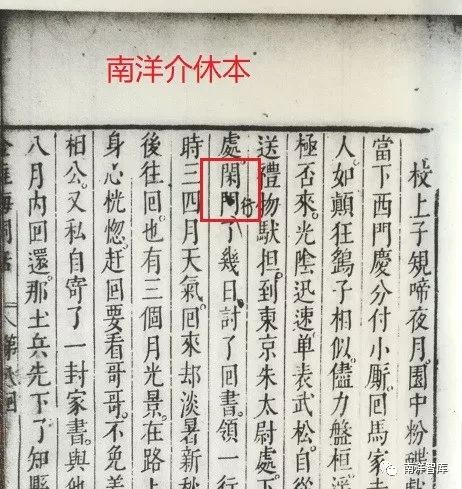 南洋介休本
校上子䂓啼夜月。園中粉蝶戲
當下西門慶分付小厮。回馬家
人。如顛狂鷂子相似。儘力盤桓。
極否來。光陰迅速。单表武松自
送禮物馱担。到東京朱太尉處。下
處。閑門了幾日。討了回書。領一行
行
時三四月天氣。回來却淡暑新秋
後往回也有三個月光景。在路上
身心恍惚。赶回要看哥哥。不免
相公。又私自寄了一封家書。與他
八月內回還。那土兵先下了知縣
第八回
南洋智库